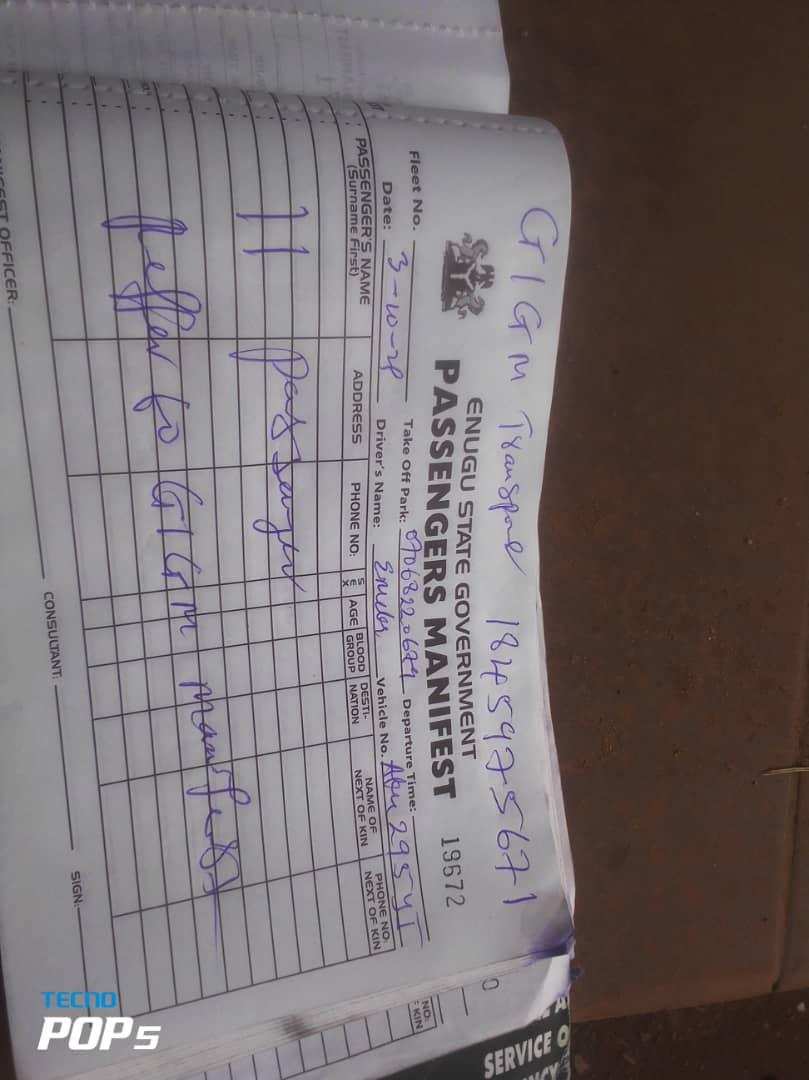 GIGM Transport 184597-5671
ENUGU STATE GOVERNMENT
PASSENGERS MANIFEST 19672
Fleet No. Take Off Park: 07068220674 Departure Time:
Date: 3-10-24 Driver's Name: Emeka Vehicle No. Abu 295 YI
PASSENGER'S NAME (Surname First) ADDRESS PHONE NO: SEX AGE BLOOD GROUP DESTI-NATION NAME OF NEXT OF KIN PHONE NO: NEXT OF KIN
11 passenger
Reffer to GIGM manifest
MANIFEST OFFICER: CONSULTANT: SIGN:
NO:
KIN
SERVICE
TECNO
POP5